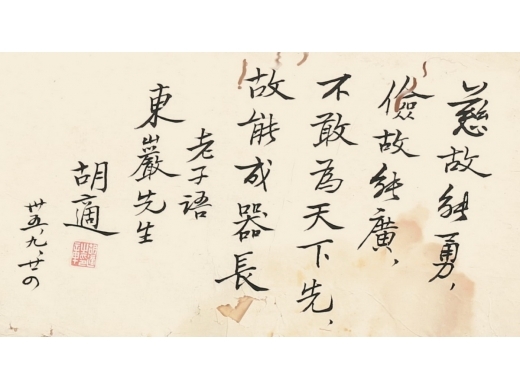 慈故能勇，
儉故能廣，
不敢為天下先，
故能成器長
老子語
東巖先生
胡適
卅五，九、廿四